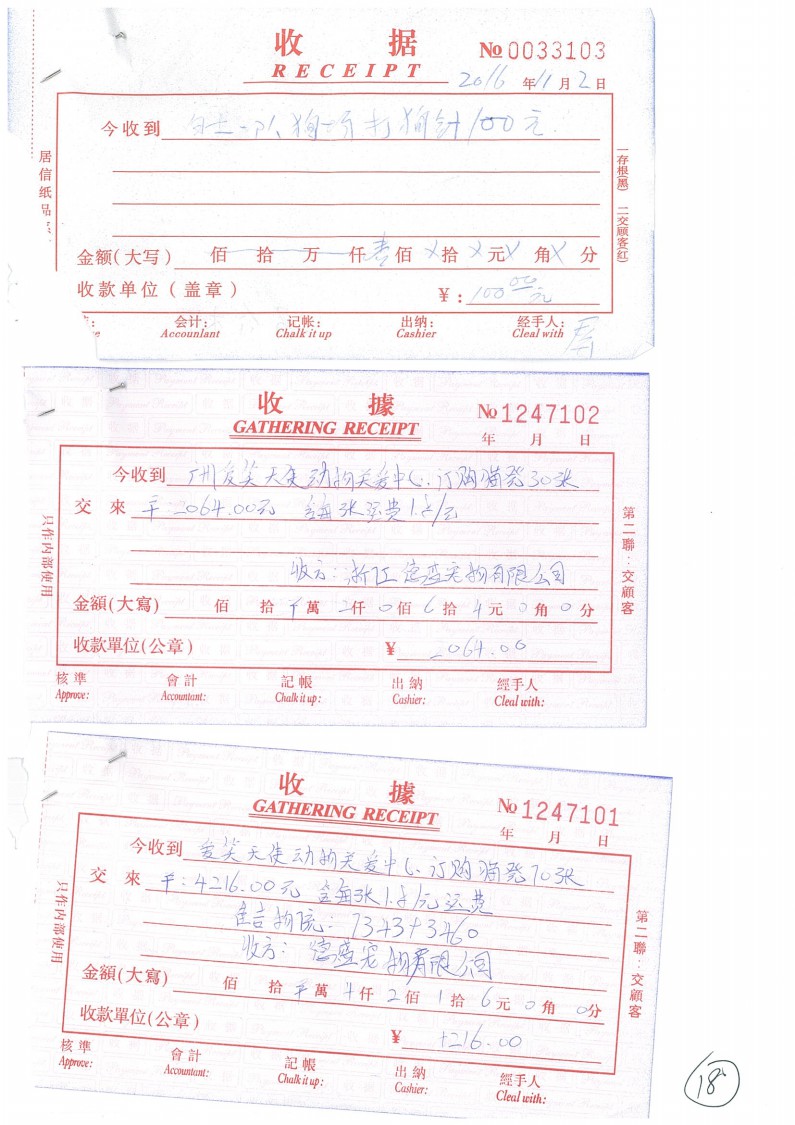 收 据 No 0033103
RECEIPT 2016 年 11 月 2 日
今收到 打狗针100元
金额(大写) 佰 拾 万 仟 壹 佰 X 拾 X 元 X 角 X 分
收款单位(盖章) ¥: 100.00元
会计: 记帐: 出纳: 经手人:
Accounlant Chalk it up Cashier Cleal with
居信纸品
一存根(黑) 二交顾客(红)
收 據 No 1247102
GATHERING RECEIPT
年 月 日
今收到 广州爱笑天使动物关爱中心 订购猫 30张
交 來 平:2064.00元 每张运费1.8/元
收方:浙江 宠物有限公司
金額(大寫) 佰 拾 平 萬 2 仟 0 佰 6 拾 4 元 0 角 0 分
收款單位(公章) ¥ 2064.00
核準 會計 記帳 出納 經手人
Approve: Accountant: Chalk it up: Cashier: Cleal with:
只作内部使用
第二聯:交顧客
收 據 No 1247101
GATHERING RECEIPT
年 月 日
今收到 爱笑天使动物关爱中心 订购猫 70张
交 來 平:4216.00元 每张1.8/元运费
佳吉物流:7343+3460
收方: 宠物有限公司
金額(大寫) 佰 拾 平 萬 4 仟 2 佰 1 拾 6 元 0 角 0 分
收款單位(公章) ¥ 4216.00
核準 會計 記帳 出納 經手人
Approve: Accountant: Chalk it up: Cashier: Cleal with:
只作内部使用
第二聯:交顧客
18